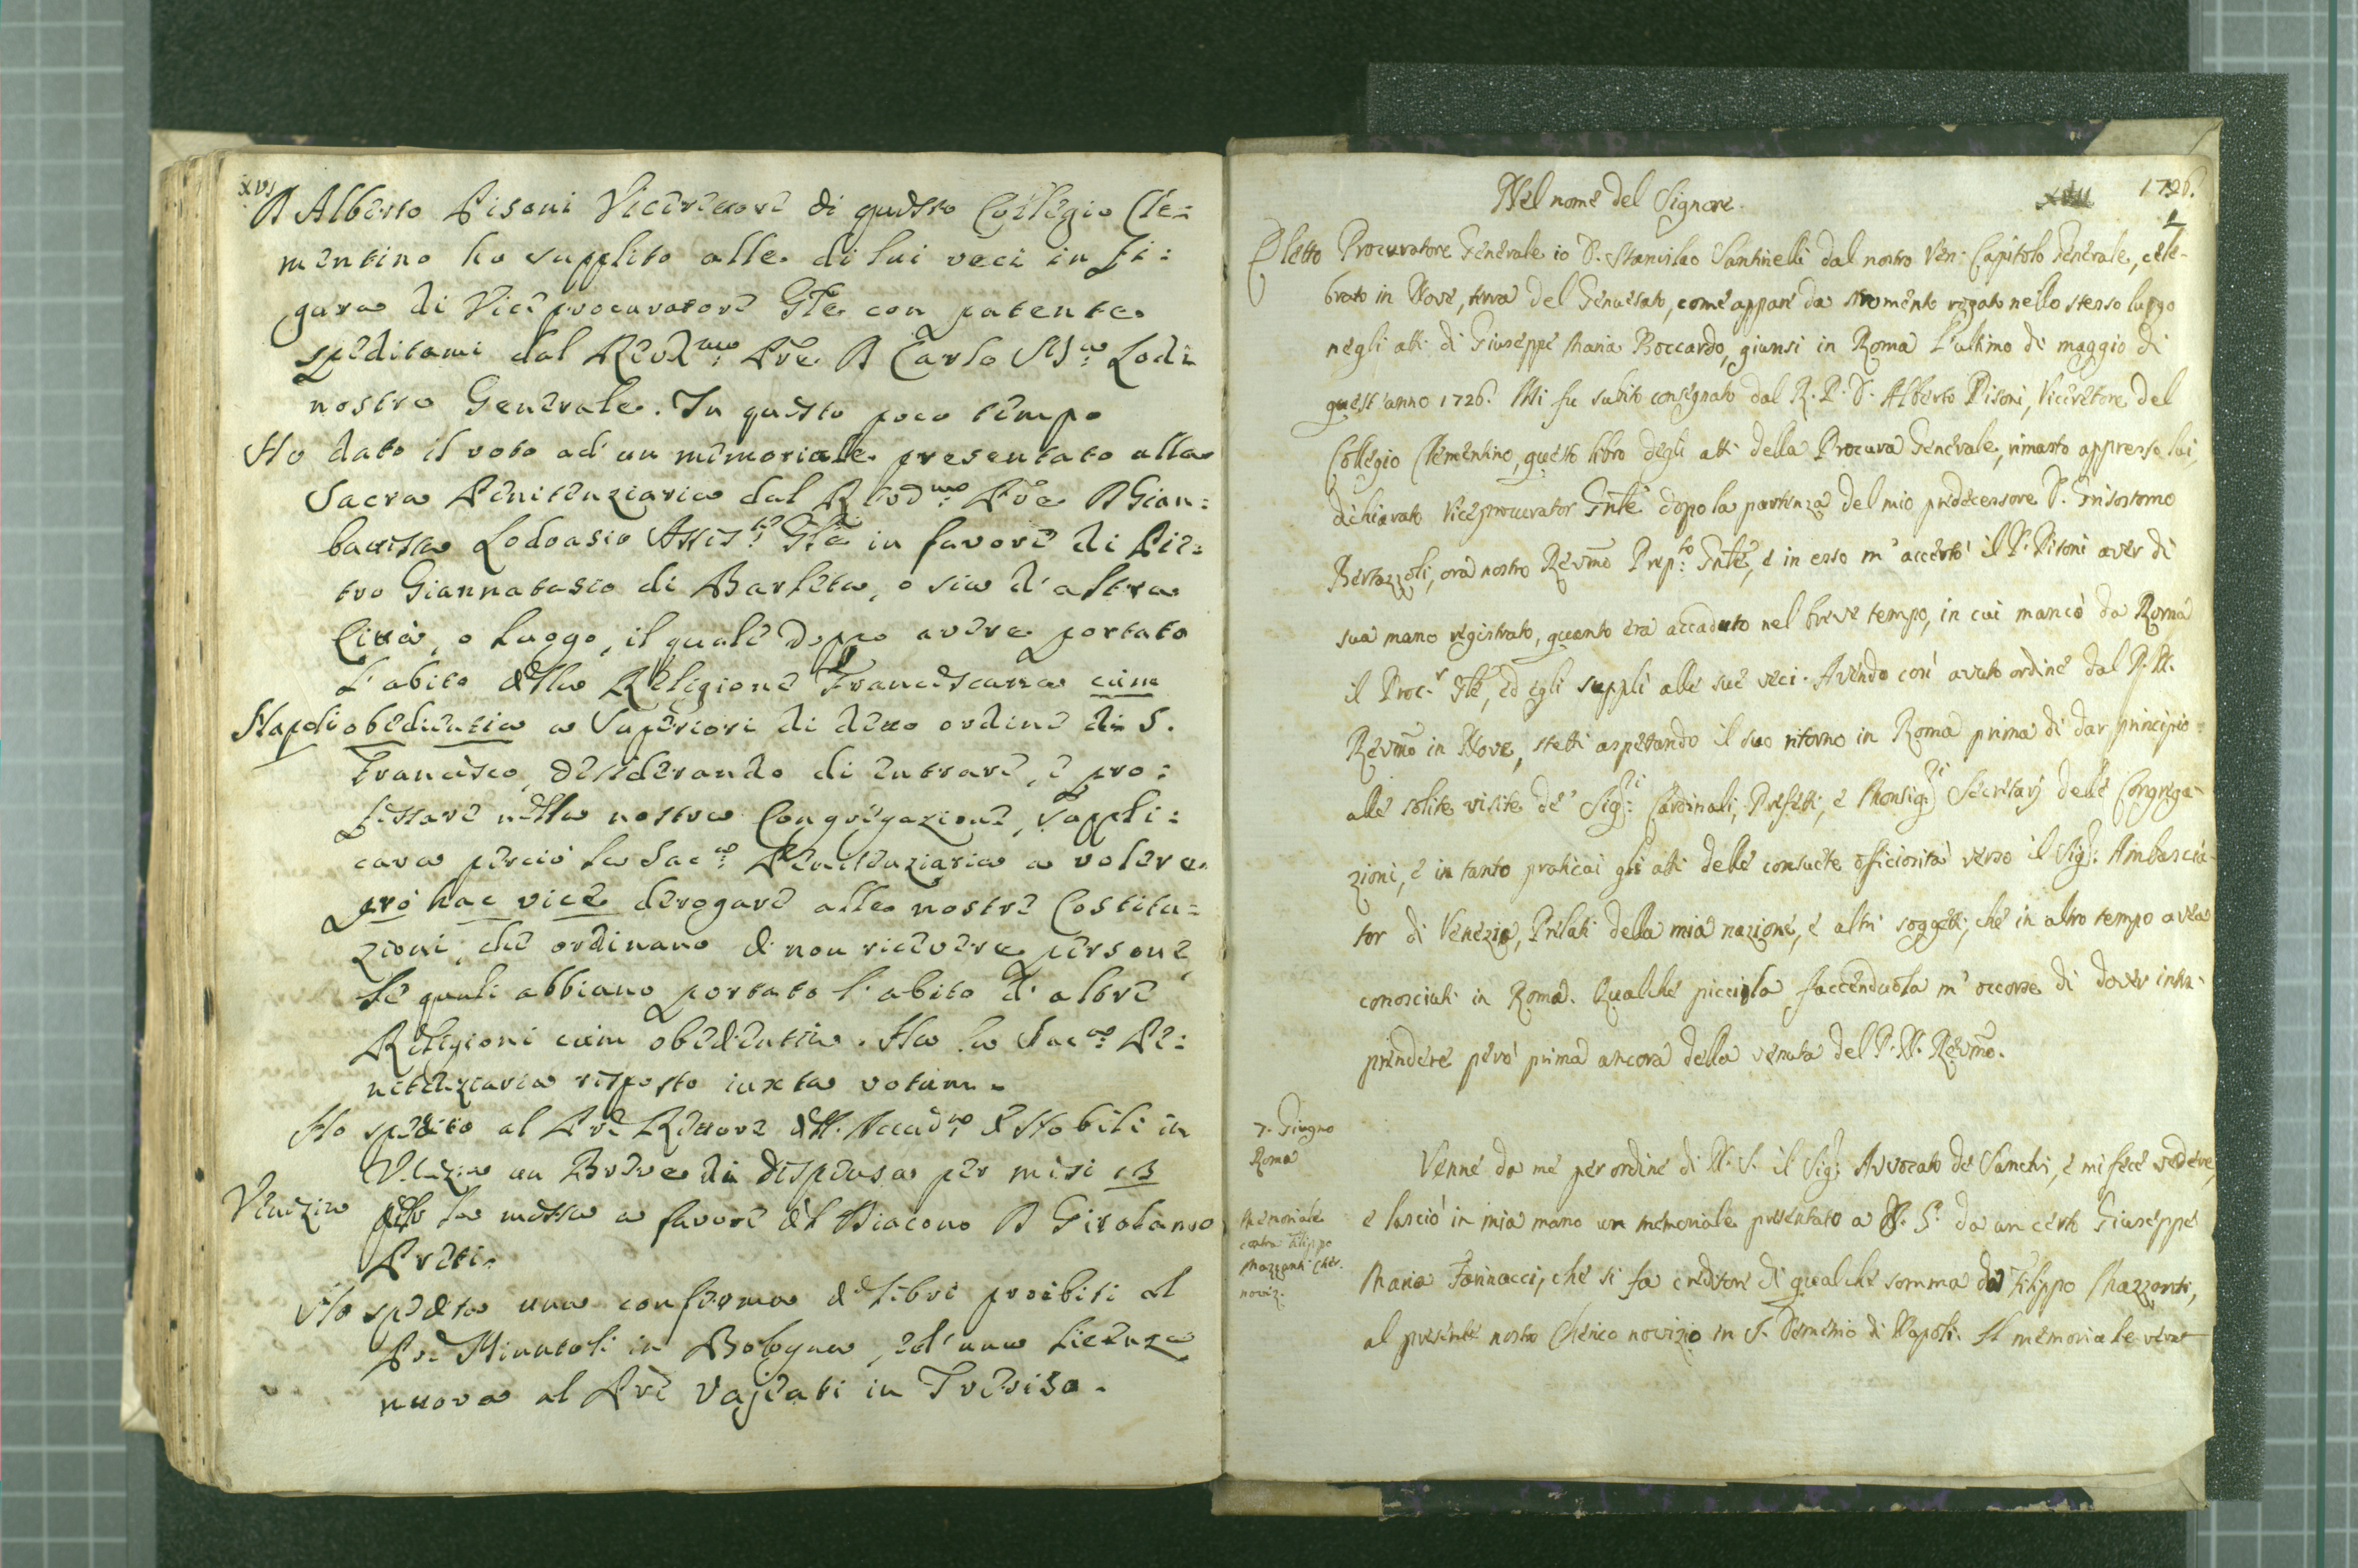 xvj
D Alberto Pisoni Vicerettore di questo Collegio Cle=
mentino ho supplito alle di lui veci in fi=
gura di Viceprocuratore Gñle con patente
speditami dal Revd.mo Prẽ D Carlo M.a Lodi
nostro Generale. In questo poco tempo
Ho dato il voto ad un memoriale presentato alla
Sacra Penitenziaria dal Revd.mo Prẽ D Gian=
battista Lodoasio Assis.te Gñle in favore di Pie=
tro Giannatasio di Barletta, o sia d'altra
Città, o luogo, il quale doppo avere portato
l'abito della Religione Franciscana cum
Napoli
obedientia a Superiori di detto ordine di S.
Francesco, desiderando di entrare, e pro=
fessare nella nostra Congregazione, suppli=
cava perciò la Sac.a Penitenziaria a volere
pro hac vice derogare alle nostre Costitu=
zioni, che ordinano di non ricevere persone,
le quali abbiano portato l'abito d'altre
Religioni cum obedientia. Ha la Sac.a Pe=
nitenziaria risposto iuxta votum.
Ho spedito al Prẽ Rettore dell'Accad.a de Nobili in
Venezia un Breve di dispensa per mesi 13
Venezia
della messa a favore del Diacono D Girolamo
Preti.
Ho spedita una conferma de libri proibiti al
Prẽ Minutoli in Bologna, ed una licenza
nuova al Prẽ Vajcati in Treviso.
Nel nome del Signore.
1726.
1
Eletto Procuratore Generale io D. Stanislao Santinelli dal nostro Ven: Capitolo Generale, cele-
brato in Nove, terra del Genuesato, come appare da stromento rogato nello stesso luogo
negli atti di Giuseppe Maria Boccardo, giunsi in Roma l'ultimo di maggio di
quest'anno 1726. Mi fu subito consegnato dal R. P. D. Alberto Pisoni, Viceretore del
Collegio Clementino, questo libro degli atti della Procura Generale, rimasto appresso lui,
dichiarato Viceprocurator Gñle dopo la partenza del mio predecessore D. Grisostomo
Bertazzoli, ora nostro Revm̃o Prep.to Gñle, e in esso m'accertò il P. Pisoni aver di
sua mano registrato, quanto era accaduto nel breve tempo, in cui mancò da Roma
il Proc.r Gñle, ed egli supplì alle sue veci. Avendo così avuto ordine dal P. N.
Revm̃o in Nove, stetti aspettando il suo ritorno in Roma prima di dar principio
alle solite visite de' Sig.ri Cardinali, Prefetti, e Monsig.ri Secretarj delle Congrega-
zioni, e in tanto praticai gli atti delle consuete officiosità verso il Sig.r Ambascia-
tor di Venezia, Prelati della mia nazione, e altri soggetti, che in altro tempo avea
conosciuti in Roma. Qualche picciola faccenduola m'occorse di dover intra-
prendere però prima ancora della venuta del P. N. Revm̃o.
7. Giugno
Roma
Venne da me per ordine di N. S. il Sig.r Avvocato de Sanchi, e mi fece vedere,
Memoriale
contra Filippo
Mazzanti Cher.
noviz:
e lasciò in mia mano un memoriale presentato a N. S. da un certo Giuseppe
Maria Farinacci, che si fa creditore di qualche somma da Filippo Mazzanti,
al presente nostro Cherico novizio in S. Demetrio di Napoli. Il memoriale venne